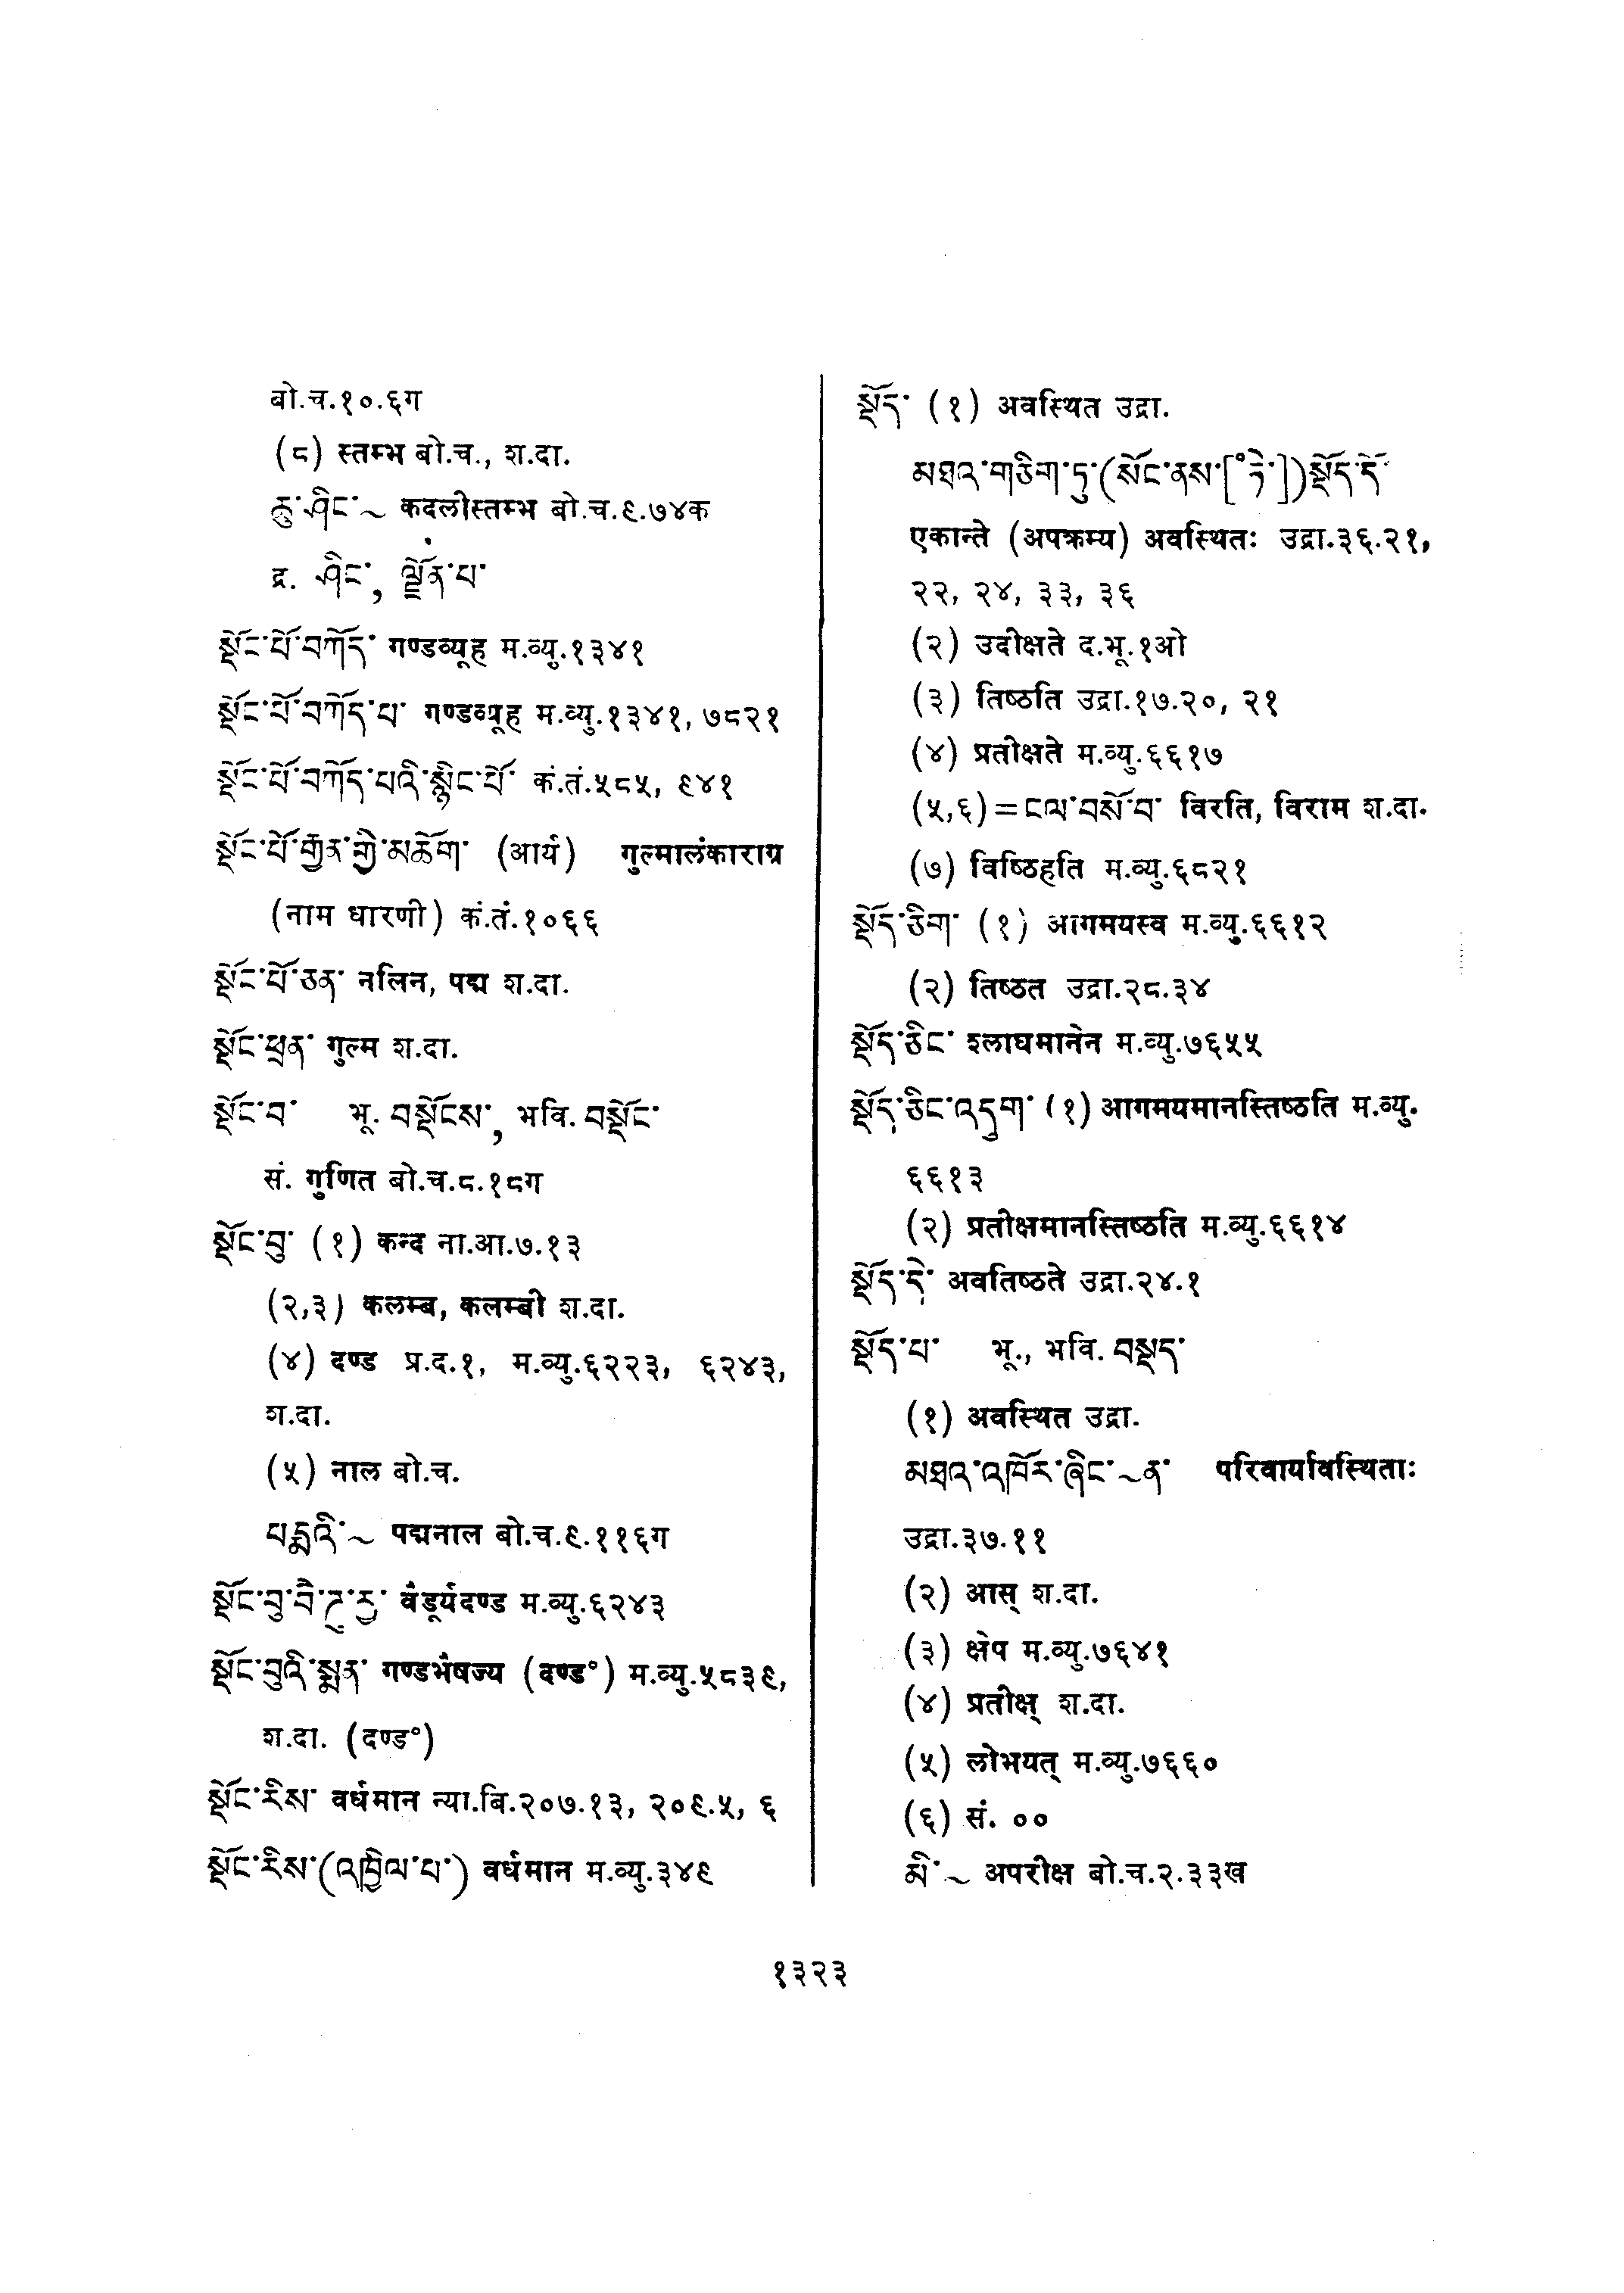 बो.च.१०.६ग
(८) स्तम्भ बो.च., श.दा.
ཆུ་ཤིང་~ कदलीस्तम्भ बो.च.९.७४क
द्र. ཤིང་, ལྗོན་པ་
སྡོང་པོ་བཀོད་ गण्डव्यूह म.व्यु.१३४१
སྡོང་པོ་བཀོད་པ་ गण्डव्यूह म.व्यु.१३४१, ७८२१
སྡོང་པོ་བཀོད་པའི་སྙིང་པོ་ कं.तं.५८५, ९४१
སྡོང་པོ་རྒྱན་གྱི་མཆོག་ (आर्य) गुल्मालंकाराग्र
(नाम धारणी) कं.तं.१०६६
སྡོང་པོ་ཅན་ नलिन, पद्म श.दा.
སྡོང་ཕྲན་ गुल्म श.दा.
སྡོང་བ་ भू. བསྡོངས་, भवि. བསྡོང་
सं. गुणित बो.च.८.१८ग
སྡོང་བུ་ (१) कन्द ना.आ.७.१३
(२,३) कलम्ब, कलम्बी श.दा.
(४) दण्ड प्र.द.१, म.व्यु.६२२३, ६२४३,
श.दा.
(५) नाल बो.च.
པདྨའི་~ पद्मनाल बो.च.९.११६ग
སྡོང་བུ་བཻ་ཌཱུ་རྱ་ वैडूर्यदण्ड म.व्यु.६२४३
སྡོང་བུའི་སྨན་ गण्डभैषज्य (दण्ड°) म.व्यु.५८३९,
श.दा. (दण्ड°)
སྡོང་རིས་ वर्धमान न्या.बि.२०७.१३, २०९.५, ६
སྡོང་རིས་(འཁྱིལ་པ་) वर्धमान म.व्यु.३४९
སྡོད་ (१) अवस्थित उद्रा.
མཐའ་གཅིག་ཏུ་(སོང་ནས་[°ཏེ་])སྡོད་དོ་
एकान्ते (अपक्रम्य) अवस्थितः उद्रा.३६.२१,
२२, २४, ३३, ३६
(२) उदीक्षते द.भू.१ओ
(३) तिष्ठति उद्रा.१७.२०, २१
(४) प्रतीक्षते म.व्यु.६६१७
(५,६)=ངལ་བསོ་བ་ विरति, विराम श.दा.
(७) विष्ठिहति म.व्यु.६८२१
སྡོད་ཅིག་ (१) आगमयस्व म.व्यु.६६१२
(२) तिष्ठत उद्रा.२८.३४
སྡོད་ཅིང་ श्लाघमानेन म.व्यु.७६५५
སྡོད་ཅིང་འདུག་ (१) आगमयमानस्तिष्ठति म.व्यु.
६६१३
(२) प्रतीक्षमानस्तिष्ठति म.व्यु.६६१४
སྡོད་དེ་ अवतिष्ठते उद्रा.२४.१
སྡོད་པ་ भू., भवि. བསྡད་
(१) अवस्थित उद्रा.
མཐའ་འཁོར་ཞིང་~ན་ परिवार्यावस्थिताः
उद्रा.३७.११
(२) आस् श.दा.
(३) क्षेप म.व्यु.७६४१
(४) प्रतीक्ष् श.दा.
(५) लोभयत् म.व्यु.७६६०
(६) सं. ००
མི་~ अपरीक्ष बो.च.२.३३ख
१३२३